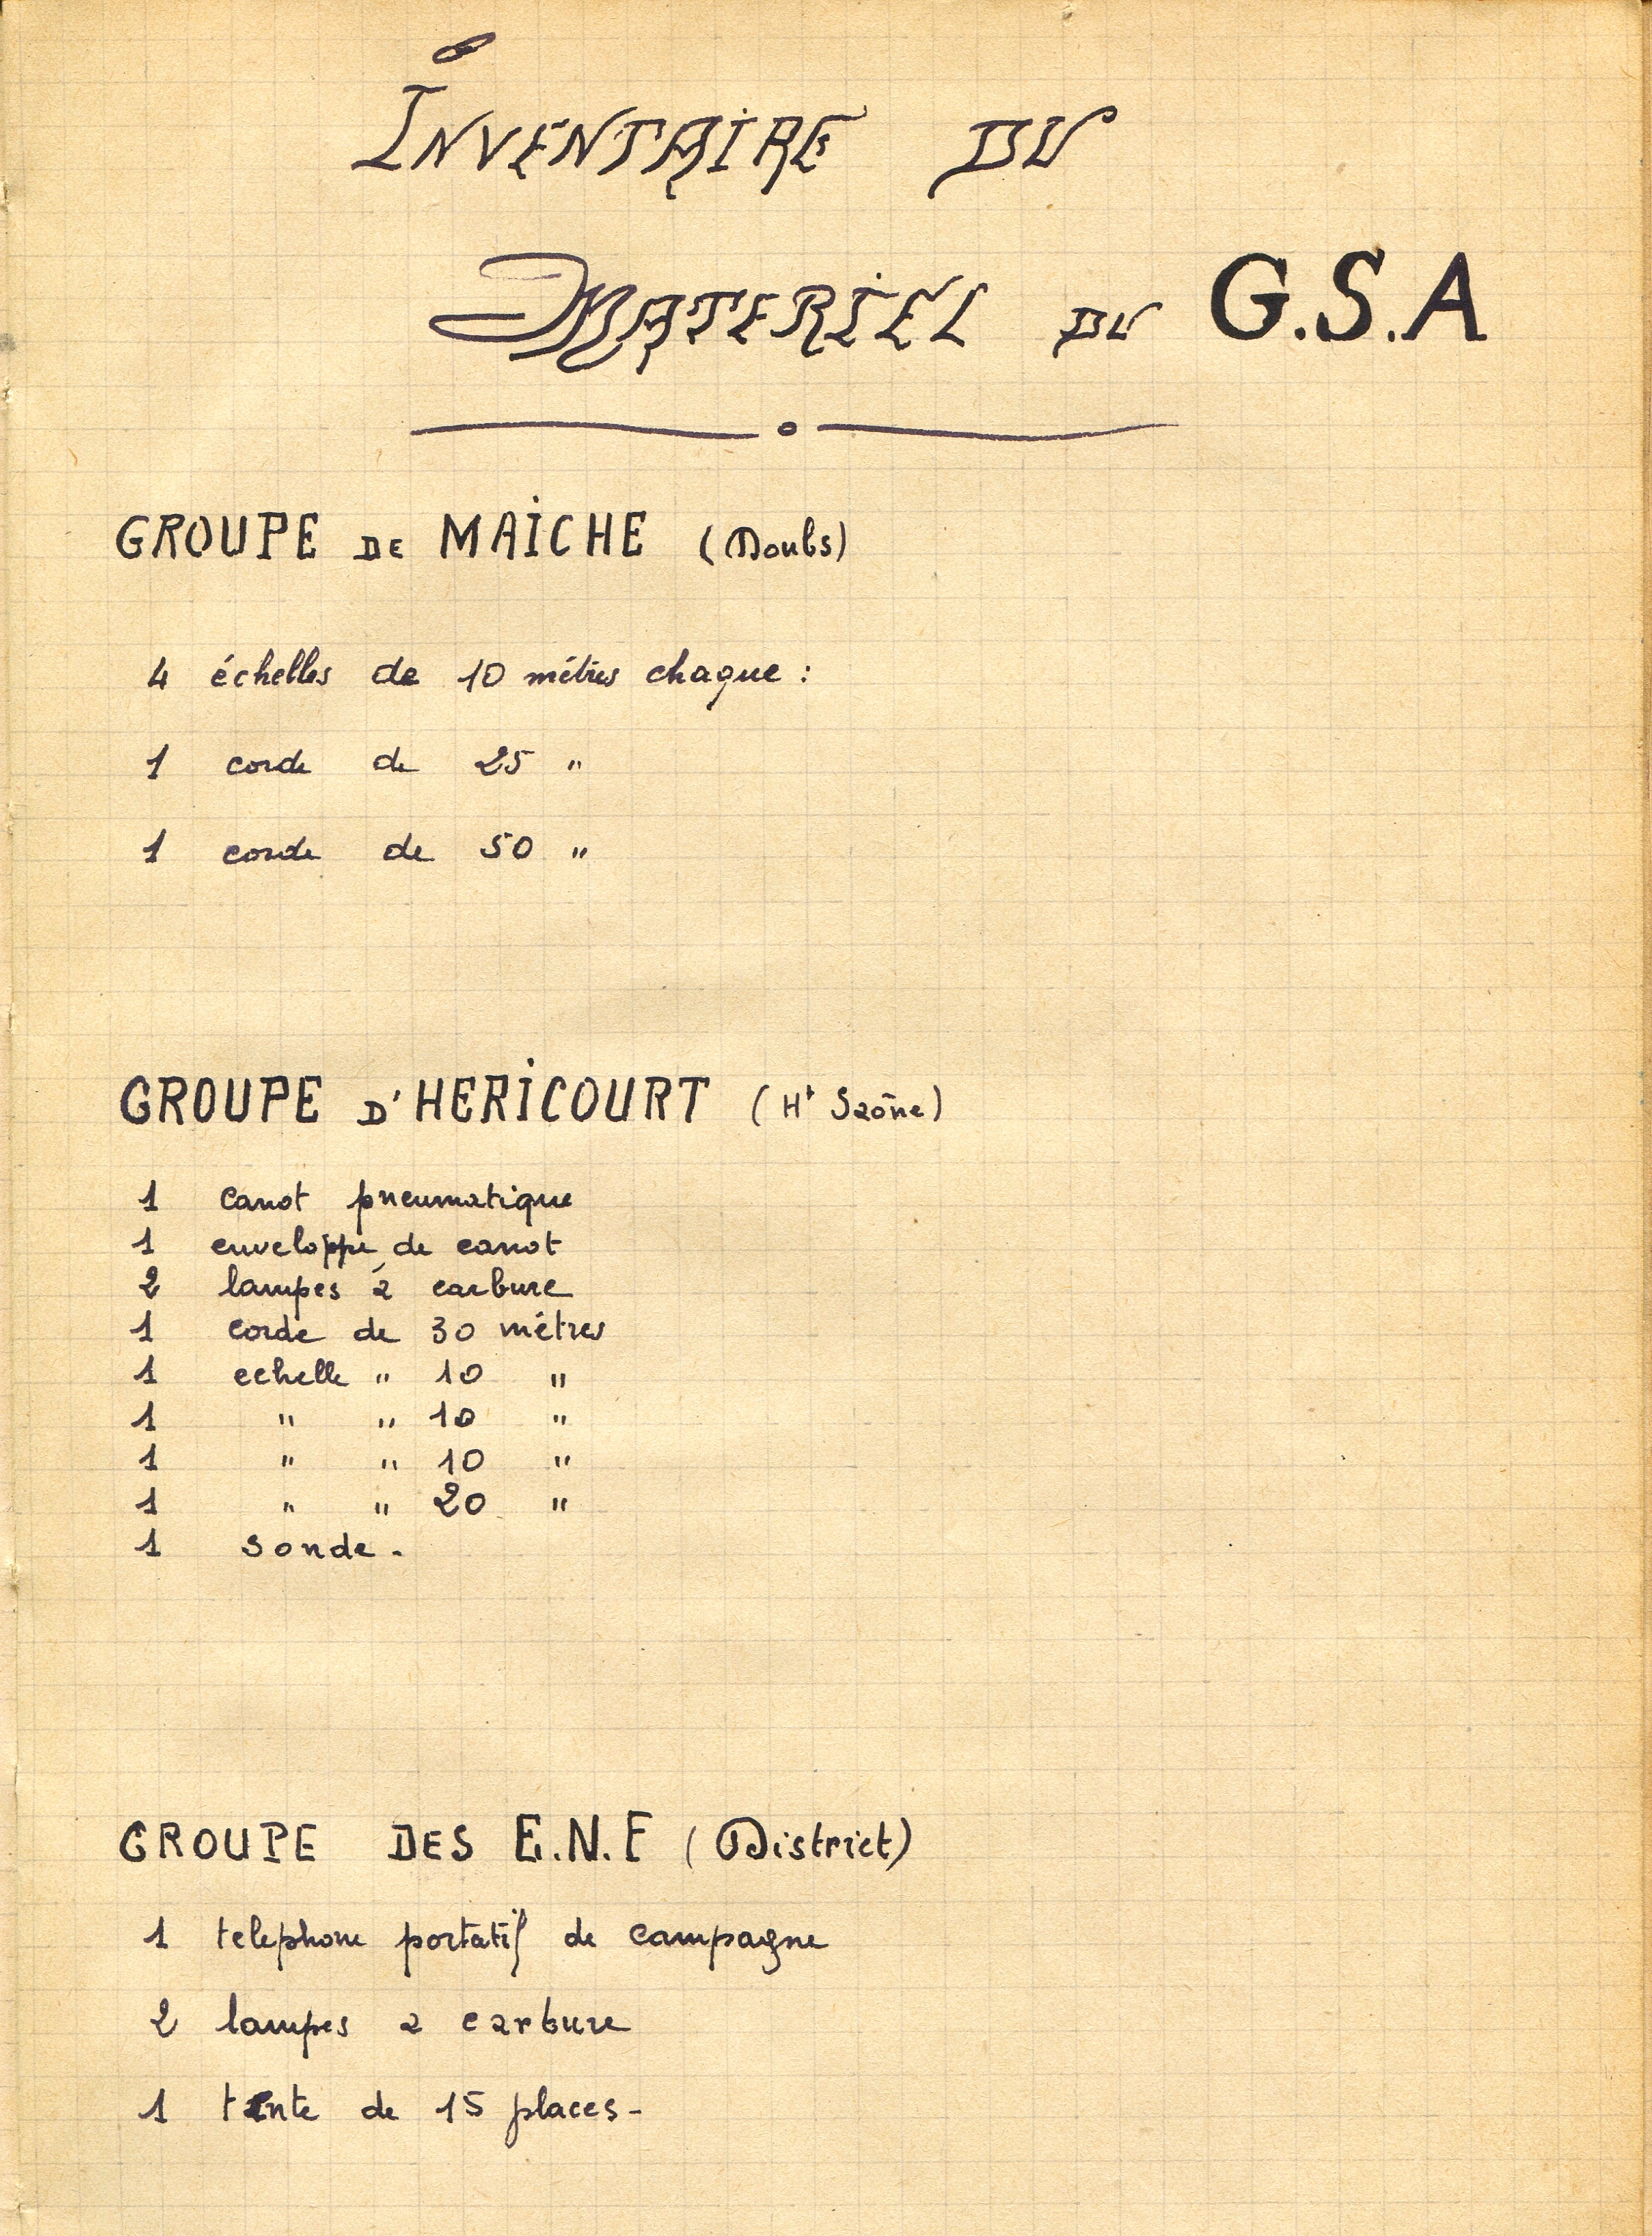 INVENTAIRE DU
MATERIEL DU G.S.A
GROUPE DE MAICHE (Doubs)
4 échelles de 10 mètres chaque :
1 corde de 25 "
1 corde de 50 "
GROUPE D'HERICOURT (Ht Saône)
1 canot pneumatique
1 enveloppe de canot
2 lampes à carbure
1 corde de 30 mètres
1 echelle " 10 "
1 " " 10 "
1 " " 10 "
1 " " 20 "
1 sonde.
GROUPE DES E.N.F (District)
1 telephone portatif de campagne
2 lampes a carbure
1 tente de 15 places-